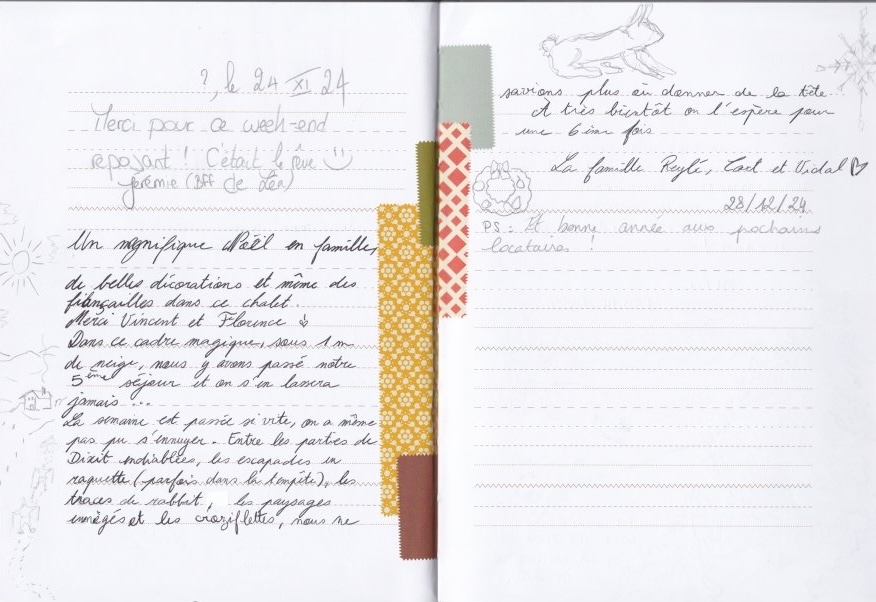 ?, le 24 XI 24
Merci pour ce week-end
reposant ! C'était le rêve
Jérémie (BFF de Léa)
Un magnifique Noël en famille,
de belles décorations et même des
fiançailles dans ce chalet.
Merci Vincent et Florence
Dans ce cadre magique, sous 1 m
de neige, nous y avons passé notre
5ème séjour et on s'en lassera
jamais ...
La semaine est passée si vite, on a même
pas pu s'ennuyer. Entre les parties de
Dixit endiablées, les escapades en
raquette (parfois dans la tempête), les
traces de rabbit, les paysages
enneigés et les croziflettes, nous ne
savions plus où donner de la tête.
A très bientôt on l'espère pour
une 6ème fois
La famille et Vidal
28/12/24
PS : Et bonne année aux prochains
locataires !